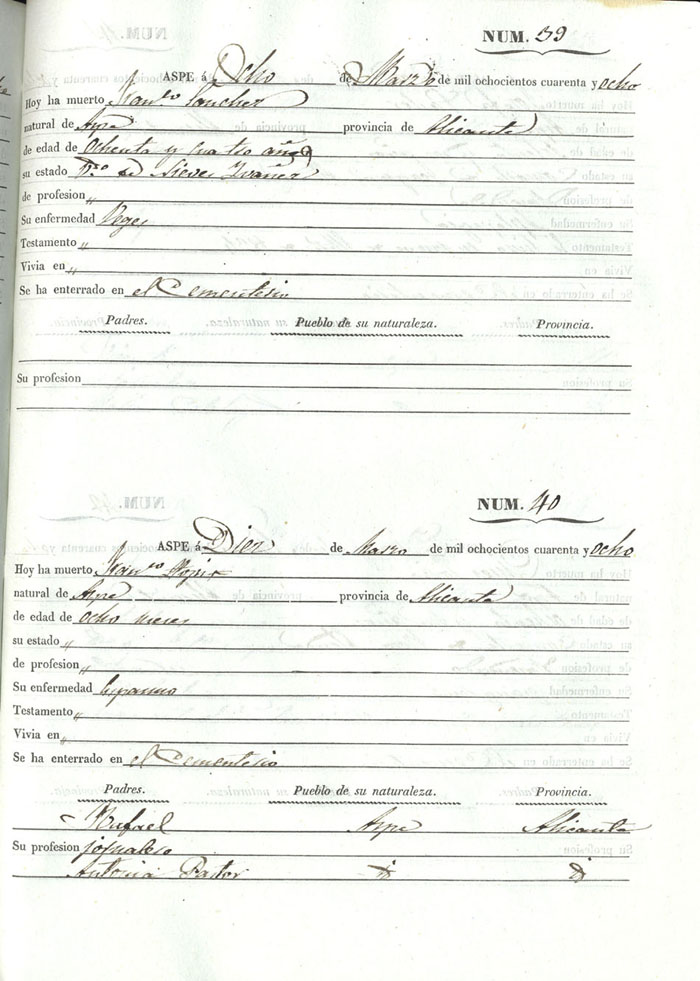 NUM. 39
ASPE á Ocho de Marzo de mil ochocientos cuarenta y ocho
Hoy ha muerto Fran.co Sanchez
natural de Aspe provincia de Alicante
de edad de Ochenta y cuatro años
su estado V.do de Nieves Ybañez
de profesion "
Su enfermedad Vegez
Testamento "
Vivia en "
Se ha enterrado en el Cementerio
Padres. Pueblo de su naturaleza. Provincia.
Su profesion
NUM. 40
ASPE á Diez de Marzo de mil ochocientos cuarenta y ocho
Hoy ha muerto Fran.co
natural de Aspe provincia de Alicante
de edad de ocho meses
su estado "
de profesion "
Su enfermedad
Testamento "
Vivia en "
Se ha enterrado en el Cementerio
Padres. Pueblo de su naturaleza. Provincia.
Rafael Aspe Alicante
Su profesion jornalero
Antonia Pastor